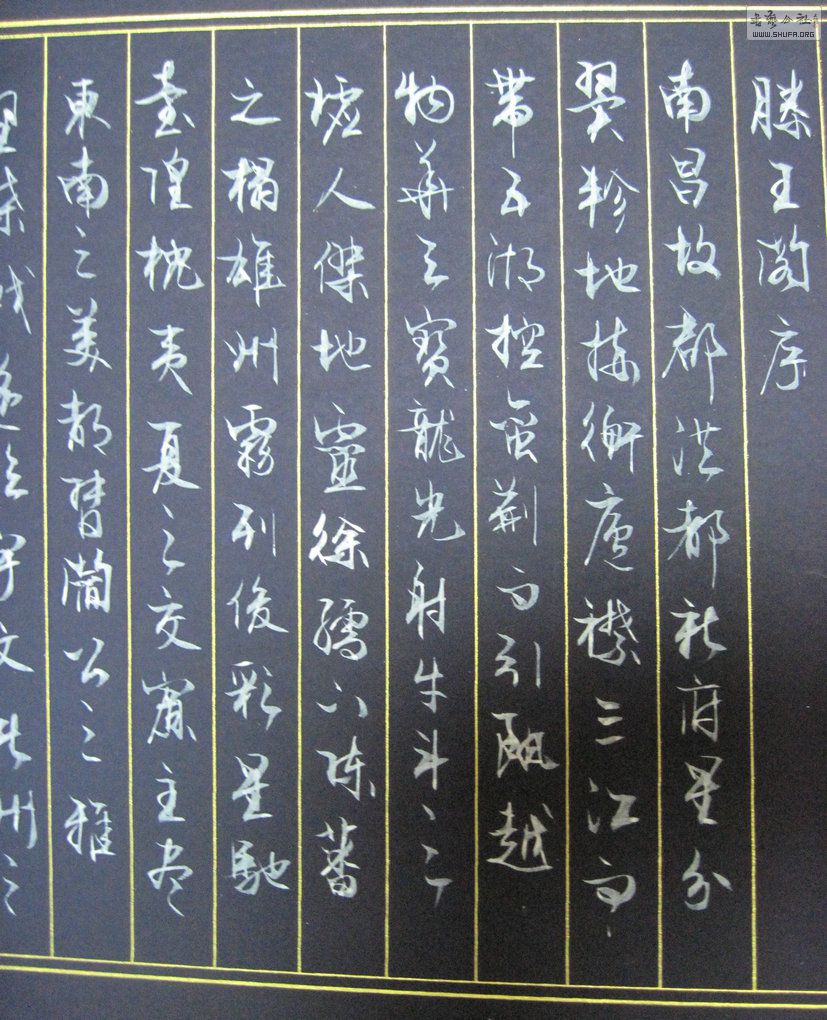 滕王閣序
南昌故都洪都新府星分
翼軫地接衡廬襟三江而
帶五湖控蛮荆而引甌越
物華天寶龍光射牛斗之
墟人傑地靈徐孺下陳蕃
之榻雄州霧列俊彩星馳
臺隍枕夷夏之交賓主尽
東南之美都督閻公之雅
望棨戟遥臨宇文新州之
WWW.SHUFA.ORG